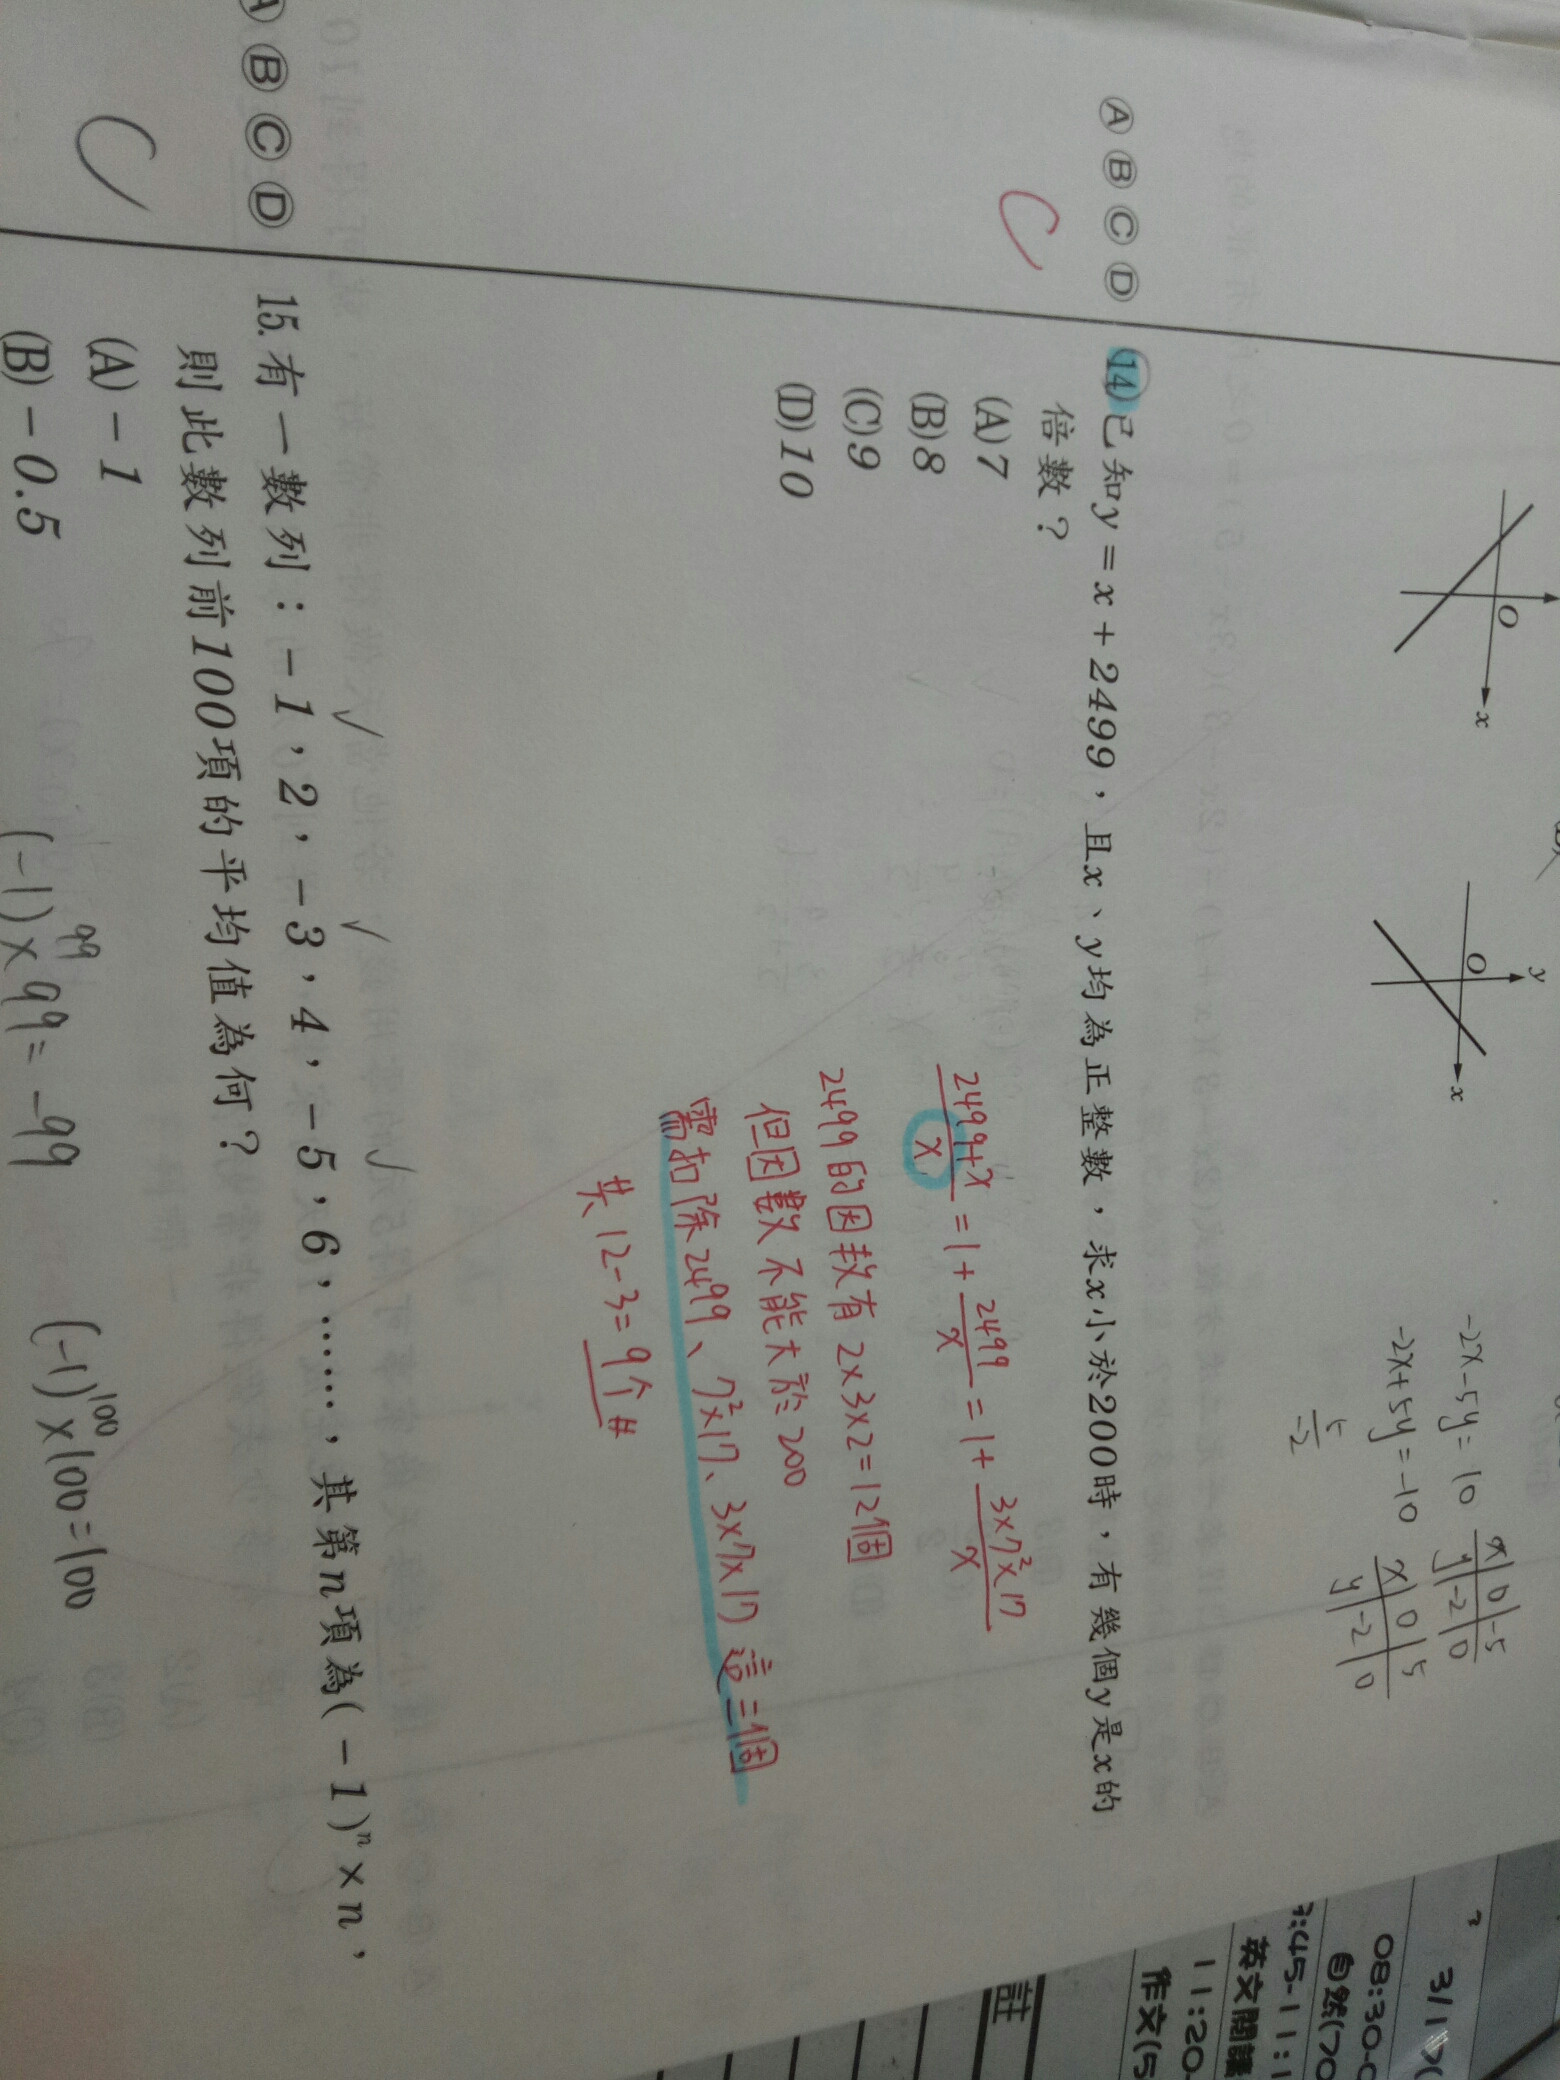 O
x
y
O
x
-2x-5y=10
x 0 -5
y -2 0
-2x+5y=-10
x 0 5
y -2 0
5
-2
Ⓐ Ⓑ Ⓒ Ⓓ
C
14 已知y=x+2499，且x、y均為正整數，求x小於200時，有幾個y是x的
倍數？
(A)7
(B)8
(C)9
(D)10
2499+x/x = 1+ 2499/x = 1+ 3×7²×17/x
2499的因數有 2×3×2=12個
但因數不能大於200
需扣除2499、7²×17、3×7×17 這三個
共 12-3=9个#
A Ⓑ Ⓒ Ⓓ
C
15.有一數列：-1，2，-3，4，-5，6，……，其第n項為(-1)ⁿ×n，
則此數列前100項的平均值為何？
(A)-1
(B)-0.5
(-1)⁹⁹×99=-99
(-1)¹⁰⁰×100=100
08:30-0
自然(70
11:20
英文閱讀
作文(5
註